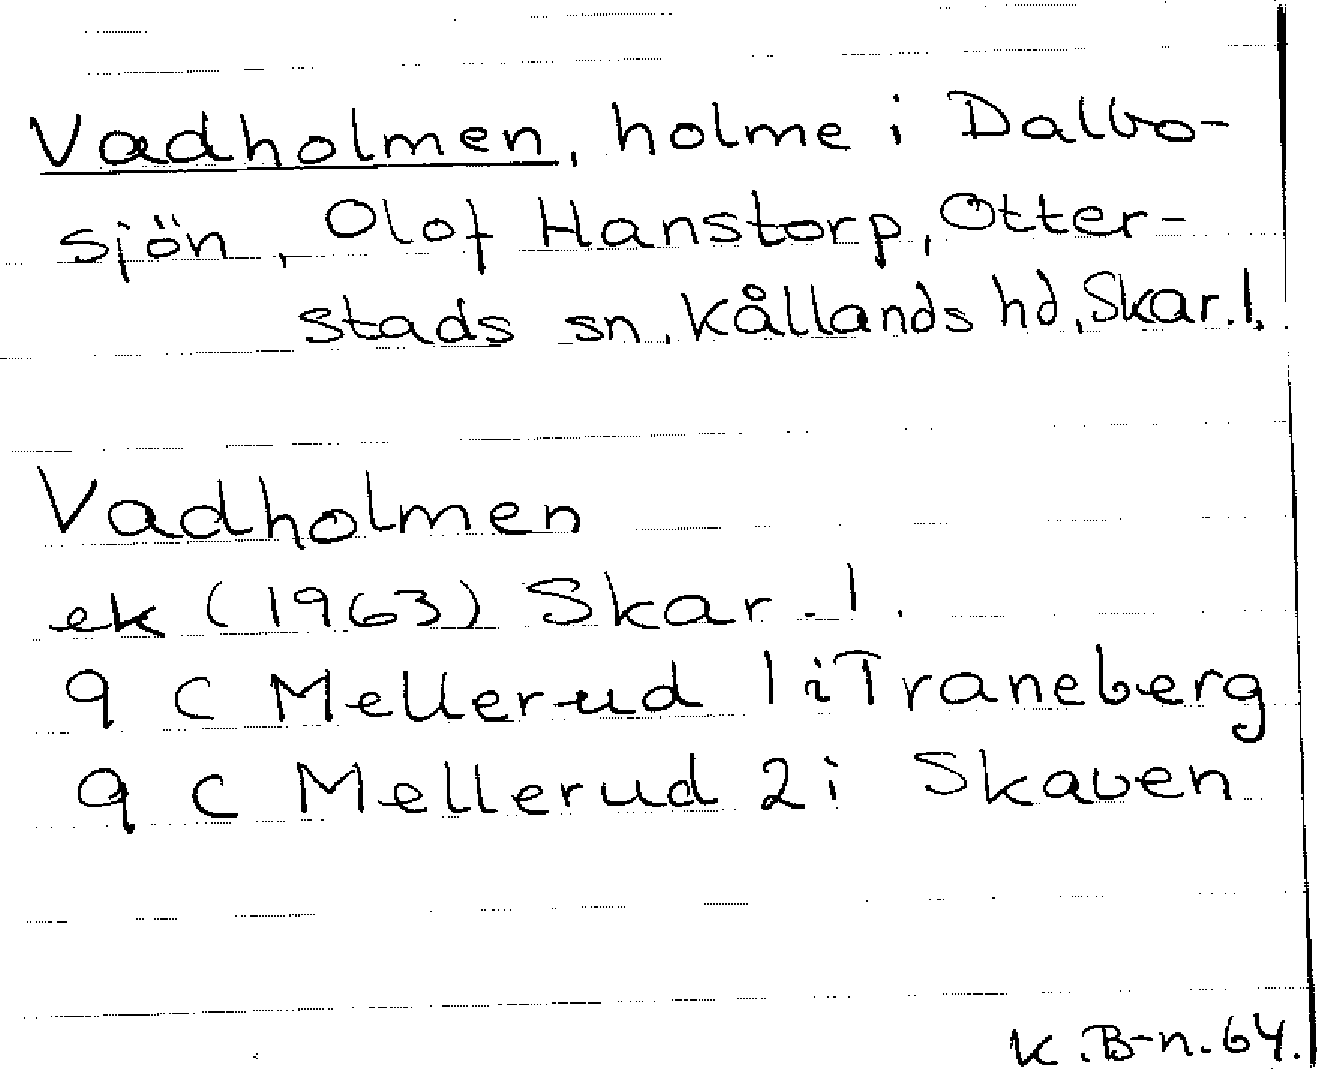 Vadholmen, holme i Dalbo-
sjön, Olof Hanstorp, Otter-
stads sn, Kållands hd, Skar. l.
Vadholmen
ek (1963) Skar. l.
9 C Mellerud 1 i Traneberg
9 C Mellerud 2 i Skaven
K. B-n. 64.